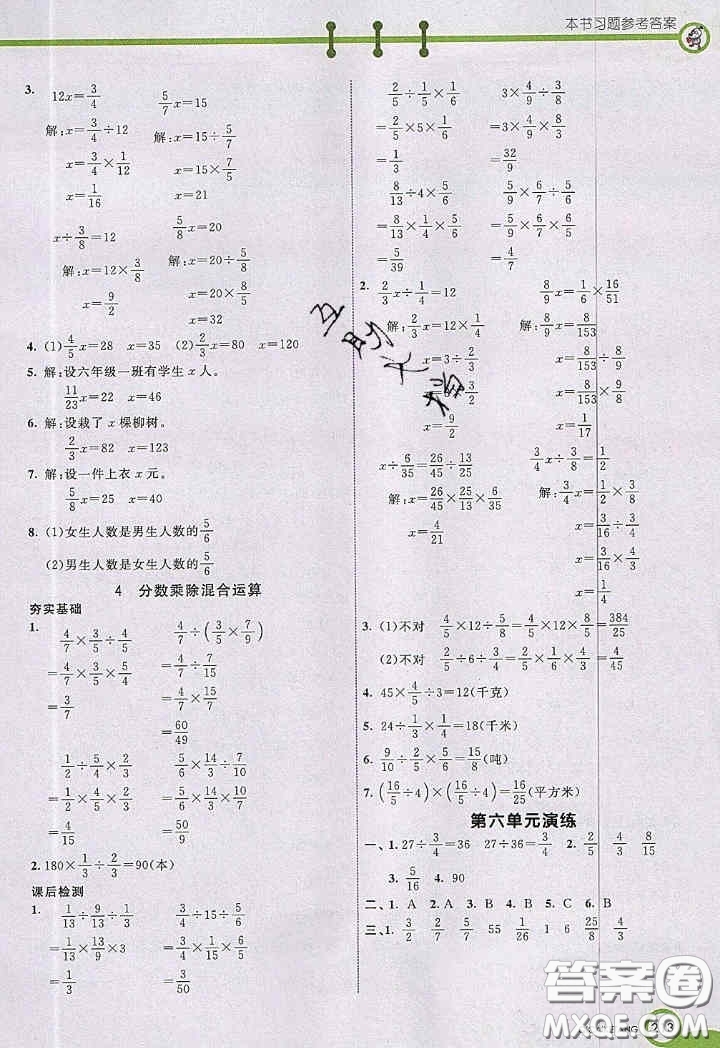 本书习题参考答案
3. 12x=3/4　5/7x=15
解:x=3/4÷12　解:x=15÷5/7
x=3/4×1/12　x=15×7/5
x=1/16　x=21
x÷3/8=12　5/8x=20
解:x=12×3/8　解:x=20÷5/8
x=9/2　x=20×8/5
x=32
4. (1)4/5x=28　x=35　(2)2/3x=80　x=120
5. 解:设六年级一班有学生x人。
11/23x=22　x=46
6. 解:设栽了x棵柳树。
2/3x=82　x=123
7. 解:设一件上衣x元。
5/8x=25　x=40
8. (1)女生人数是男生人数的5/6
(2)男生人数是女生人数的5/6
4　分数乘除混合运算
夯实基础
1. 4/7×3/5÷4/5　4/7÷(3/5×7/9)
=4/7×3/5×5/4　=4/7÷7/15
=3/7　=4/7×15/7
=60/49
1/2÷5/4×2/3　5/7×9/10÷7/10
=1/2×4/5×2/3　=5/7×9/10×10/7
=4/15　=50/9
2. 180×1/3÷2/3=90(本)
课后检测
1. 1/13÷9/13÷1/3　3/4÷15÷5/6
=1/13×13/9×3　=3/4×1/15×6/5
=1/3　=3/50
2/5÷1/5×1/6　3×3/4÷3/8
=2/5×5×1/6　=3×3/4×8/3
=1/3　=32/9
8/13÷4×5/6　5/9×6/7÷5/6
=8/13×1/4×5/6　=5/9×6/7×6/5
=5/39　=4/7
2. 2/3x÷1/4=12　8/9x=1/6×16/51
解:2/3x=12×1/4　解:8/9x=8/153
x=3÷2/3　x=8/153÷8/9
x=3/2　x=8/153×9/8
x=9/2　x=1/17
x÷6/35=26/45÷13/25　3/4x÷3/8=1/2
解:x=26/45×25/13×6/35　解:3/4x=3/16
x=4/21　x=3/16÷3/4
x=3/16×4/3
x=1/4
3. (1)不对　4/5×12÷5/8=4/5×12×8/5=384/25
(2)不对　2/5÷6÷3/4=2/5×1/6×4/3=4/45
4. 45×4/5÷3=12(千克)
5. 24÷1/3×1/4=18(千米)
6. 9/10÷2/5×5/6=15/8(吨)
7. (16/5÷4)×(16/5÷4)=16/25(平方米)
第六单元演练
一、1. 27÷3/4=36　27÷36=3/4　2. 2/5　3/4　8/15
3. 5/16　4. 90
二、1. A　2. A　3. A　4. B　5. C　6. B
三、1. 3/2　2/7　5/7　55　1/26　1　6　25/8　4/3
互助文档
答案圈
MXQE.COM